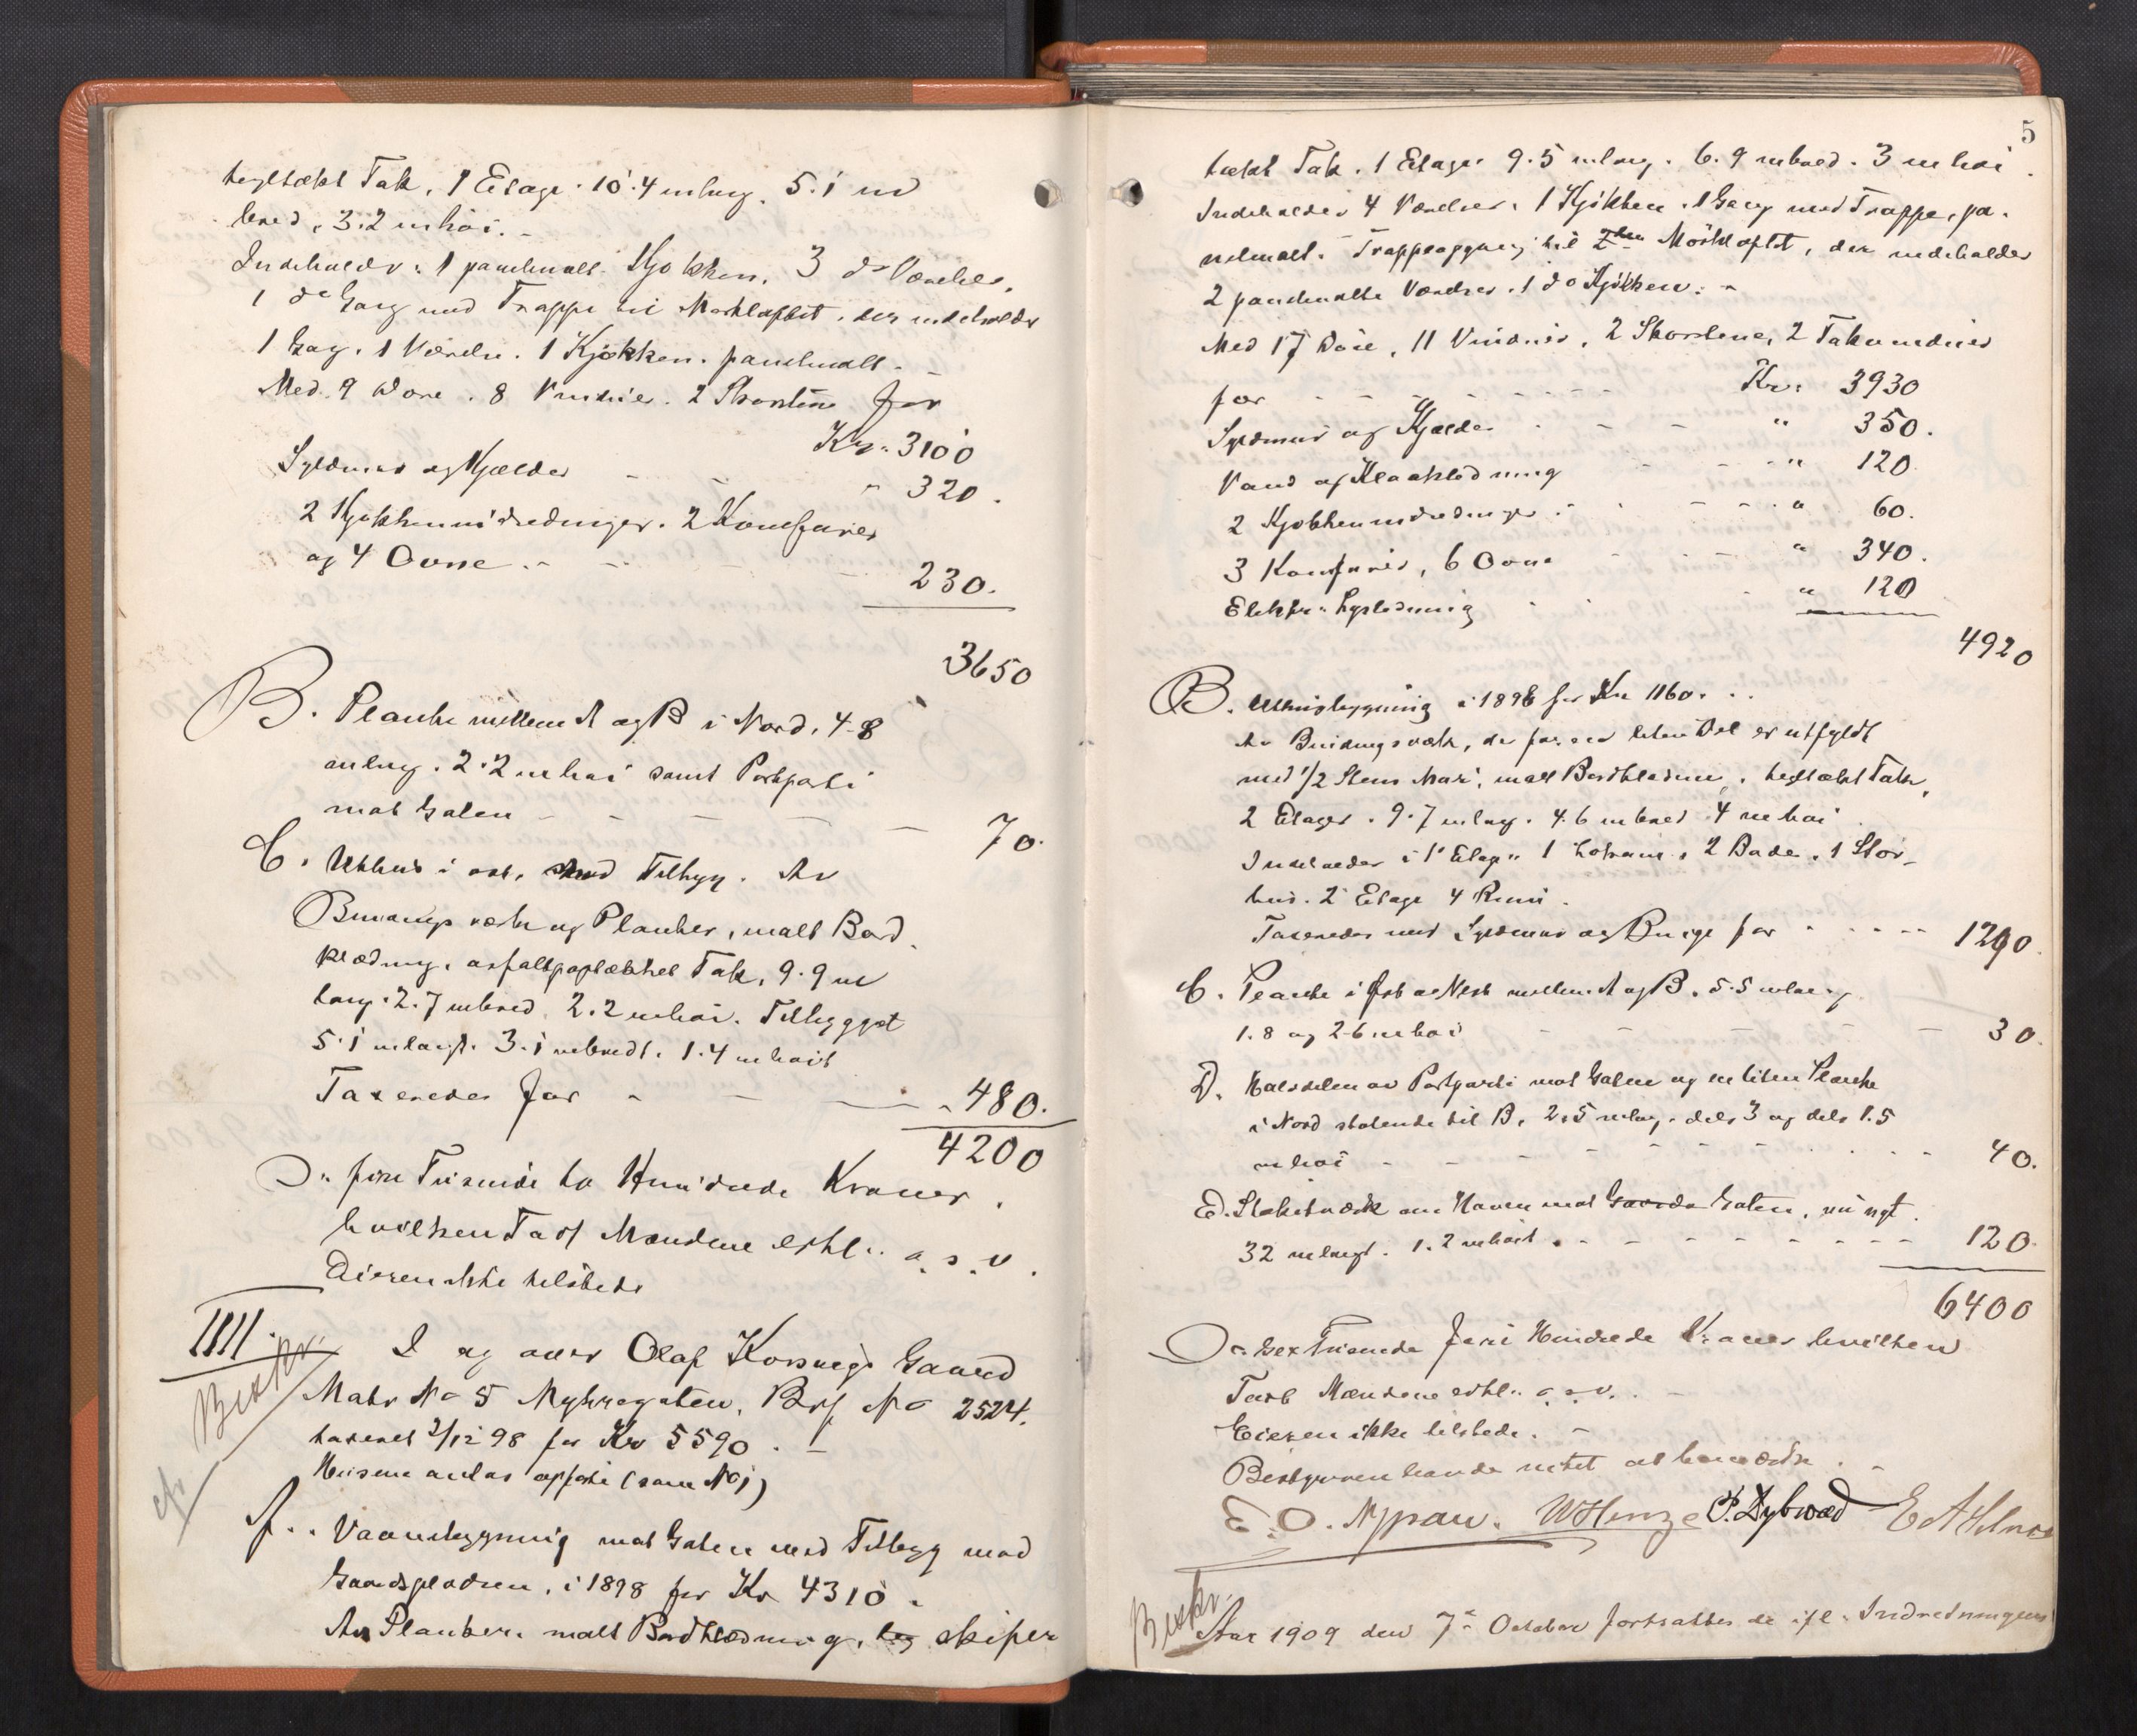 tegltækt Tak, 1 Etage. 10.4 m lang. 5.1 m
bred, 3.2 m høi. -
Indeholder: 1 panelmalt Kjøkken. 3 do Værelser,
1 do Gang med Trappe til Mørkloftet, der indeholder
1 Gag. 1 Værelse. 1 Kjøkken. panelmalt. -
Med 9 Døre. 8 Vinduer. 2 Skorstene for
Kr. 3100
Syldmur og Kjælder - - " 320.
2 Kjøkkenindredninger. 2 Komfurer
og 4 Ovne. - - - 230.
3650
B. Planke mellem A og B i Nord, 4.8
m lang. 2.2 m høi samt Portparti
mot Gaten - - - - 70.
C. Uthus i øst, med Tilbyg. Av
Bindingsværk og Planker, malt Bord-
klædning, asfaltpaptækket Tak, 9.9 m
lang. 2.7 m bred 2.2 m høi. Tilbygget
5.1 m langt. 3.1 m bredt. 1.4 m høit
Taxeredes for - - - 480.
4200
D: fire Tusinde to Hundrede Kroner.
hvilken Taxt Mændene erkl. o. s. v.
Eieren ikke tilstede
IIII.
Beskr.
I og over Olaf Korsnes Gaard
Matr No 5 Myhregaten, Brf No 2524.
taxeret 2/12 98 for Kr 5590. -
Husene antas opført (som No 1)
A. Vaaningsbygning mot Gaten med Tilbygg mod
Gaardspladsen, i 1898 for Kr 4310.
Av Planker. malt Bordklædning. teg skifer
5
tækt Tak. 1 Etage 9.5 m lang. 6.9 m bred. 3 m høi.
Indeholder 4 Værelser. 1 Kjøkken. 1 Gang med Trappe, pa-
nelmalt. Trappeopgang til Mørkloftet, der indeholder
2 panelmalte Værelser. 1 do Kjøkken. -
Med 17 Døre, 11 Vinduer, 2 Skorstene, 2 Takvinduer
for - - - - - - Kr. 3930
Syldmur og Kjælder - - - " 350.
Vand og Kloakledning - - " 120
2 Kjøkkenindredninger - - - " 60.
3 Komfurer, 6 Ovne - - " 340.
Elektr. Lysledning - - - " 120
4920
B. Uthusbygning i 1898 for Kr 1160. . .
Av Bindingsværk, der for en liten Del er utfyldt
med 1/2 Stens Mur, malt Bordklædning, tegltækt Tak,
2 Etager. 9.7 m lang. 4.6 m bred 4 m høi
Indeholder i 1' Etage 1 Lokum, 2 Boder, 1 Stor-
hus. 2' Etage 4 Rum.
Taxeredes med Syldmur og Binge for - - - - 1290.
C. Planke i Øst og Vest mellem A og B. 5.5 m lang
1.8 og 2.6 m høi - - - - - 30.
D. Halvdelen av Portparti mot Gaten og en liten Planke
i Nord støtende til B, 2.5 m lang. dels 3 og dels 1.5
m høi - - - - - - - 40.
E. Stakitværk om Haven mot Gaarda Gaten, nu nyt.
32 m langt. 1.2 m høit. - - - - - - 120.
6400
D: sex Tusinde fire Hundrede Kroner hvilken
Taxt Mændene erkl. o. s. v. . -
Eieren ikke tilstede. -
Bestyreren havde intet at bemærke. -
E. O. Nypan. W Henze P. Dybwad
Beskr.
Aar 1909 den 7de October fortsattes de ifl. Indredningens